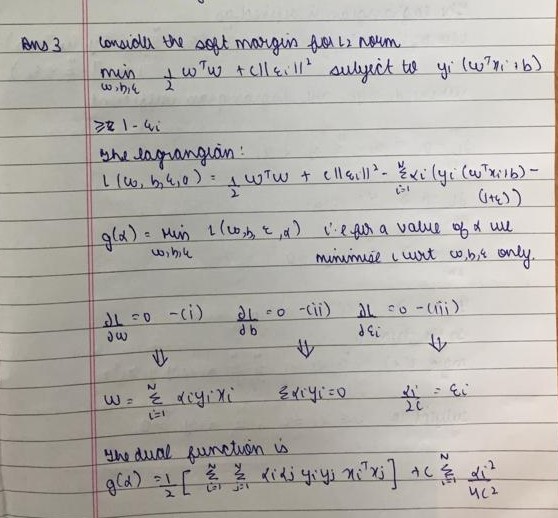 Ans 3 Consider the soft margin for L2 norm
min 1/2 wᵀw + c||εi||² subject to yi (wᵀxi + b)
w,b,ε
≥ 1 - εi
The lagrangian:
L (w, b, ε, α) = 1/2 wᵀw + c||εi||² - Σ_{i=1}^{N} αi (yi (wᵀxi+b) - (1+ε))
g(α) = Min L(w,b, ε, α) i.e for a value of α we
w,b,ε minimise L wrt w,b,ε only.
∂L/∂w = 0 -(i) ∂L/∂b = 0 -(ii) ∂L/∂εi = 0 -(iii)
⇓ ⇓ ⇓
w = Σ_{i=1}^{N} αi yi xi Σ αi yi = 0 αi/2c = εi
The dual function is
g(α) = 1/2 [ Σ_{i=1}^{N} Σ_{j=1}^{N} αi αj yi yj xiᵀxj ] + c Σ_{i=1}^{N} αi²/4c²